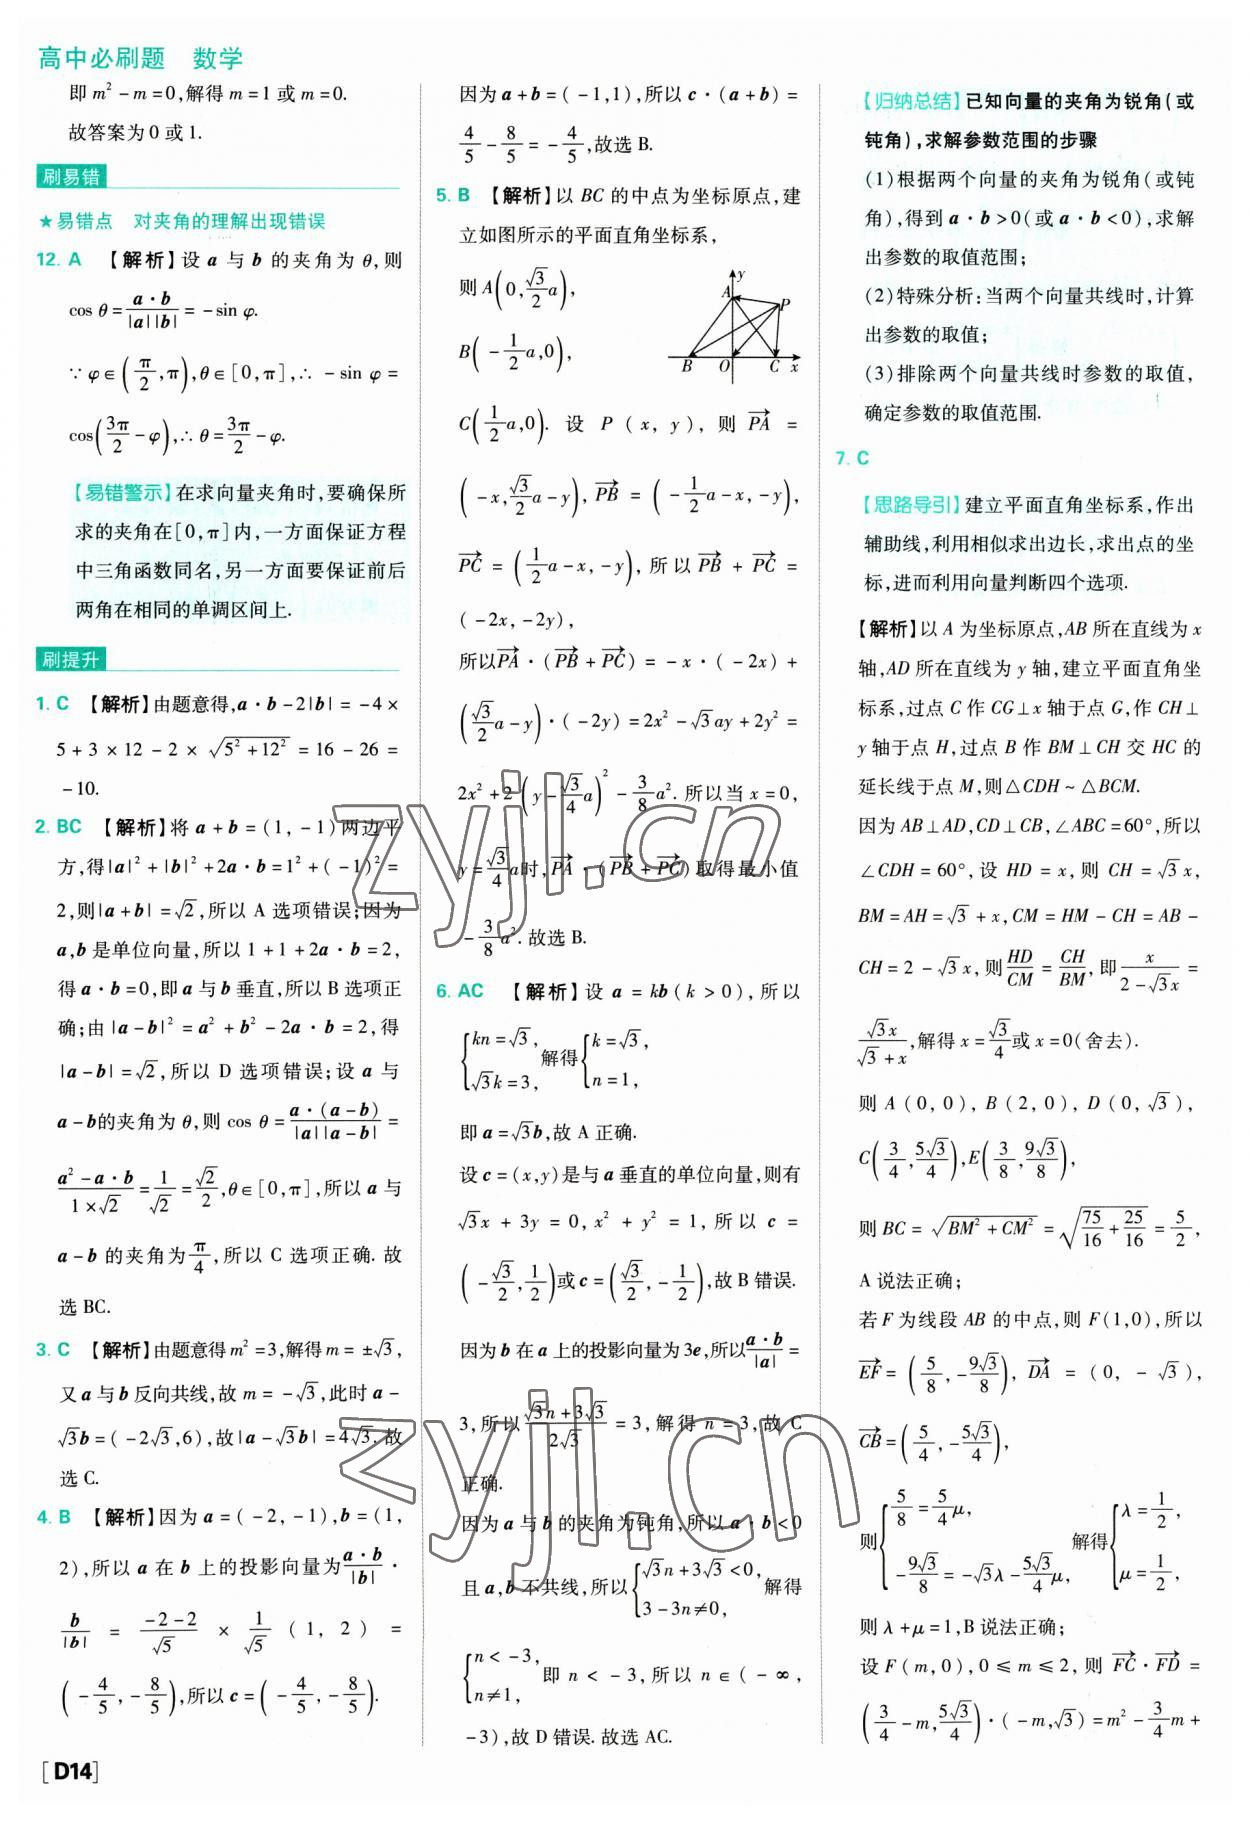 高中必刷题 数学
即 m²-m=0,解得 m=1 或 m=0.
故答案为 0 或 1.
刷易错
★易错点 对夹角的理解出现错误
12. A 【解析】设 a 与 b 的夹角为 θ,则
cos θ=a·b/|a||b|=-sin φ.
∵φ∈(π/2,π),θ∈[0,π],∴-sin φ=
cos(3π/2-φ),∴θ=3π/2-φ.
【易错警示】在求向量夹角时,要确保所
求的夹角在[0,π]内,一方面保证方程
中三角函数同名,另一方面要保证前后
两角在相同的单调区间上.
刷提升
1. C 【解析】由题意得,a·b-2|b|=-4×
5+3×12-2×√(5²+12²)=16-26=
-10.
2. BC 【解析】将 a+b=(1,-1)两边平
方,得|a|²+|b|²+2a·b=1²+(-1)²=
2,则|a+b|=√2,所以 A 选项错误;因为
a,b 是单位向量,所以 1+1+2a·b=2,
得 a·b=0,即 a 与 b 垂直,所以 B 选项正
确;由|a-b|²=a²+b²-2a·b=2,得
|a-b|=√2,所以 D 选项错误;设 a 与
a-b的夹角为 θ,则 cos θ=a·(a-b)/|a||a-b|=
(a²-a·b)/(1×√2)=1/√2=√2/2,θ∈[0,π],所以 a 与
a-b 的夹角为π/4,所以 C 选项正确.故
选 BC.
3. C 【解析】由题意得 m²=3,解得 m=±√3,
又 a 与 b 反向共线,故 m=-√3,此时 a-
√3b=(-2√3,6),故|a-√3b|=4√3.故
选 C.
4. B 【解析】因为 a=(-2,-1),b=(1,
2),所以 a 在 b 上的投影向量为a·b/|b|·
b/|b|=(-2-2)/√5×1/√5(1,2)=
(-4/5,-8/5),所以 c=(-4/5,-8/5).
[D14]
因为 a+b=(-1,1),所以 c·(a+b)=
4/5-8/5=-4/5,故选 B.
5. B 【解析】以 BC 的中点为坐标原点,建
立如图所示的平面直角坐标系,
则 A(0,√3/2a),
B(-1/2a,0),
y
A
P
B
O
C
x
C(1/2a,0). 设 P(x,y),则 PA=
(-x,√3/2a-y),PB=(-1/2a-x,-y),
PC=(1/2a-x,-y),所以 PB+PC=
(-2x,-2y),
所以PA·(PB+PC)=-x·(-2x)+
(√3/2a-y)·(-2y)=2x²-√3ay+2y²=
2x²+2(y-√3/4a)²-3/8a².所以当 x=0,
y=√3/4a时,PA·(PB+PC)取得最小值
-3/8a².故选 B.
6. AC 【解析】设 a=kb(k>0),所以
{kn=√3, √3k=3,解得{k=√3, n=1,
即 a=√3b,故 A 正确.
设 c=(x,y)是与 a 垂直的单位向量,则有
√3x+3y=0,x²+y²=1,所以 c=
(-√3/2,1/2)或 c=(√3/2,-1/2),故 B 错误.
因为 b 在 a 上的投影向量为 3e,所以a·b/|a|=
3,所以(√3n+3√3)/2√3=3,解得 n=3,故 C
正确.
因为 a 与 b 的夹角为钝角,所以 a·b<0
且 a,b 不共线,所以{√3n+3√3<0, 3-3n≠0,解得
{n<-3, n≠1,即 n<-3,所以 n∈(-∞,
-3),故 D 错误.故选 AC.
【归纳总结】已知向量的夹角为锐角(或
钝角),求解参数范围的步骤
(1)根据两个向量的夹角为锐角(或钝
角),得到 a·b>0(或 a·b<0),求解
出参数的取值范围;
(2)特殊分析:当两个向量共线时,计算
出参数的取值;
(3)排除两个向量共线时参数的取值,
确定参数的取值范围.
7. C
【思路导引】建立平面直角坐标系,作出
辅助线,利用相似求出边长,求出点的坐
标,进而利用向量判断四个选项.
【解析】以 A 为坐标原点,AB 所在直线为 x
轴,AD 所在直线为 y 轴,建立平面直角坐
标系,过点 C 作 CG⊥x 轴于点 G,作 CH⊥
y 轴于点 H,过点 B 作 BM⊥CH 交 HC 的
延长线于点 M,则△CDH∽△BCM.
因为 AB⊥AD,CD⊥CB,∠ABC=60°,所以
∠CDH=60°,设 HD=x,则 CH=√3x,
BM=AH=√3+x,CM=HM-CH=AB-
CH=2-√3x,则HD/CM=CH/BM,即x/(2-√3x)=
√3x/(√3+x),解得 x=√3/4或 x=0(舍去).
则 A(0,0),B(2,0),D(0,√3),
C(3/4,5√3/4),E(3/8,9√3/8),
则 BC=√(BM²+CM²)=√(75/16+25/16)=5/2,
A 说法正确;
若 F 为线段 AB 的中点,则 F(1,0),所以
EF=(5/8,-9√3/8),DA=(0,-√3),
CB=(5/4,-5√3/4),
则{5/8=5/4μ, -9√3/8=-√3λ-5√3/4μ,解得{λ=1/2, μ=1/2,
则 λ+μ=1,B 说法正确;
设 F(m,0),0≤m≤2,则 FC·FD=
(3/4-m,5√3/4)·(-m,√3)=m²-3/4m+
zyjl.cn
zyjl.cn